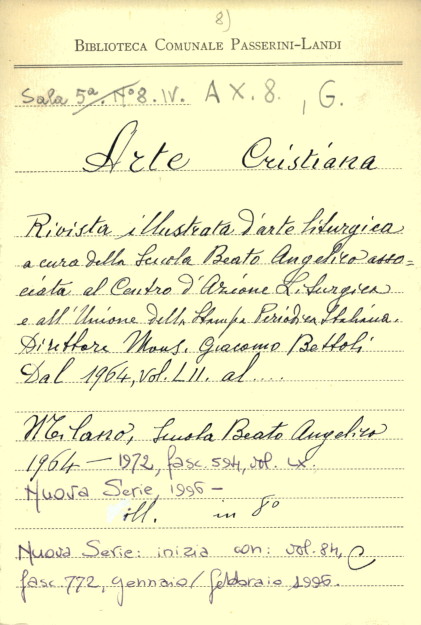 8)
BIBLIOTECA COMUNALE PASSERINI-LANDI
Sala 5ª. Nº 8. IV. A X. 8. , G.
Arte Cristiana
Rivista illustrata d'arte liturgica
a cura della Scuola Beato Angelico asso=
ciata al Centro d'Azione Liturgica
e all'Unione della Stampa Periodica Italiana.
Direttore Mons. Giacomo Bettoli
Dal 1964, vol. LII. al....
Milano, Scuola Beato Angelico
1964 — 1972, fasc. 594, vol. LX.
Nuova Serie, 1996 -
ill. in 8º
Nuova Serie: inizia con: vol. 84,
fasc. 772, gennaio/febbraio 1996.